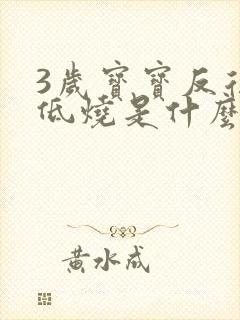 3歲寶寶反
低燒是什麼
黃水成